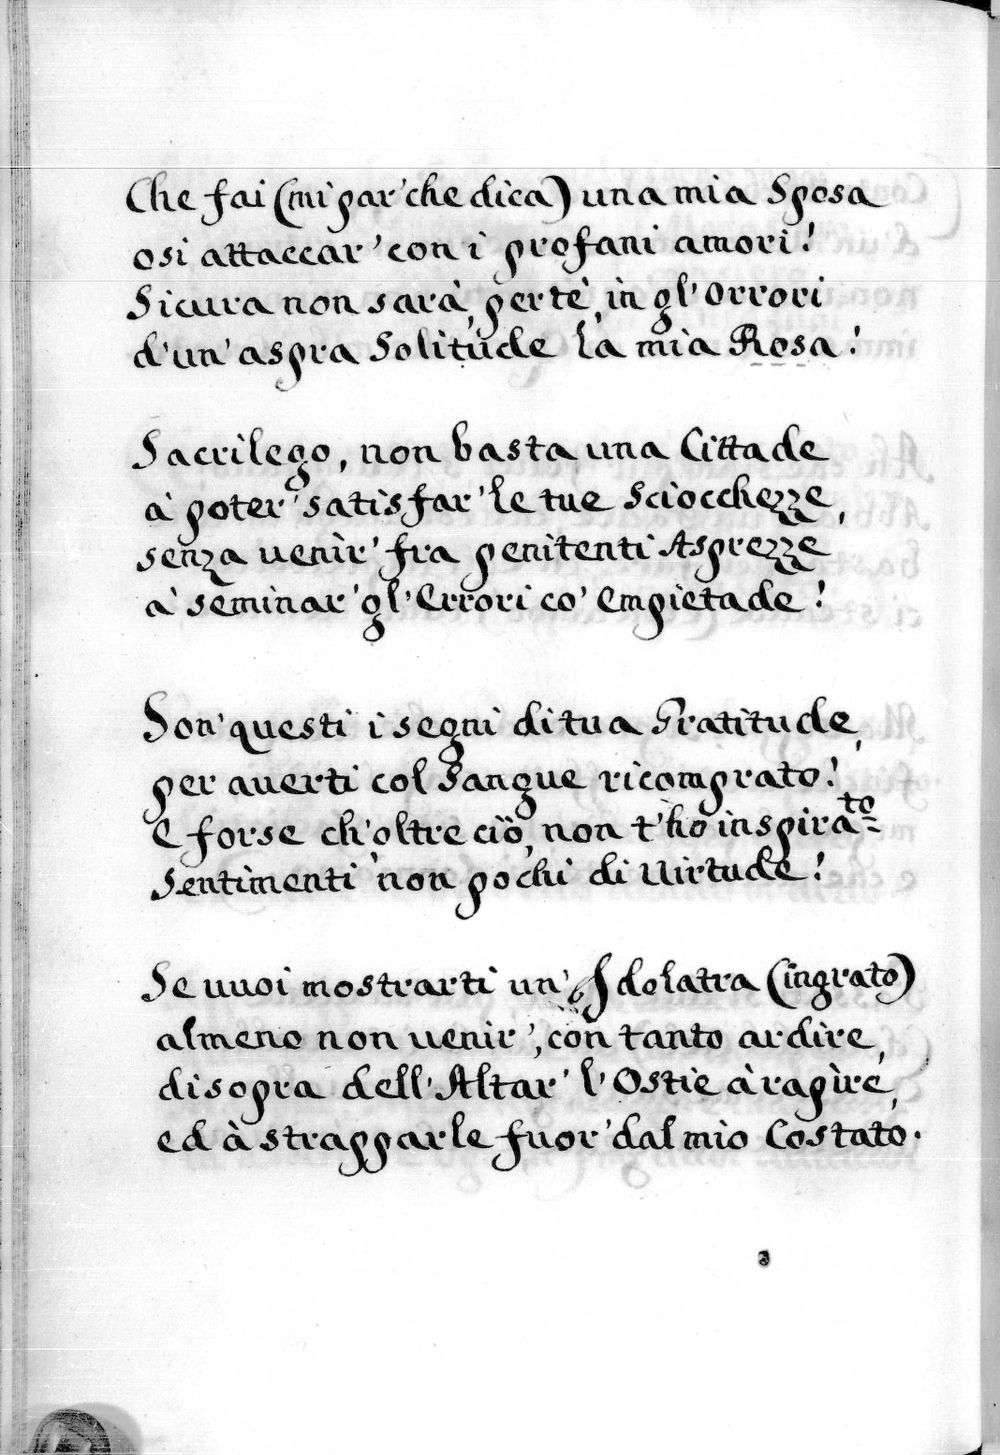 Che fai (mi par' che dica) una mia Sposa
osi attaccar' con i profani amori!
Sicura non sarà, per tè, in gl' Orrori
d'un' aspra Solitùde la mia Rosa!
Sacrilego, non basta una Cittade
à poter' satisfar' le tue Sciocchezze,
senza uenir' fra penitenti Asprezze
à seminar' gl' Errori co' Empietade!
Son' questi i segni di tua Gratitude,
per auerti col Sangue ricomprato!
E forse ch'oltre ciò, non t'hò inspira=to
Sentimenti non pochi di Uirtude!
Se uuoi mostrarti un' Idolatra (ingrato)
almeno non uenir', con tanto ardire,
di sopra dell' Altar' l' Ostie à rapire,
ed à strapparle fuor' dal mio Costato.